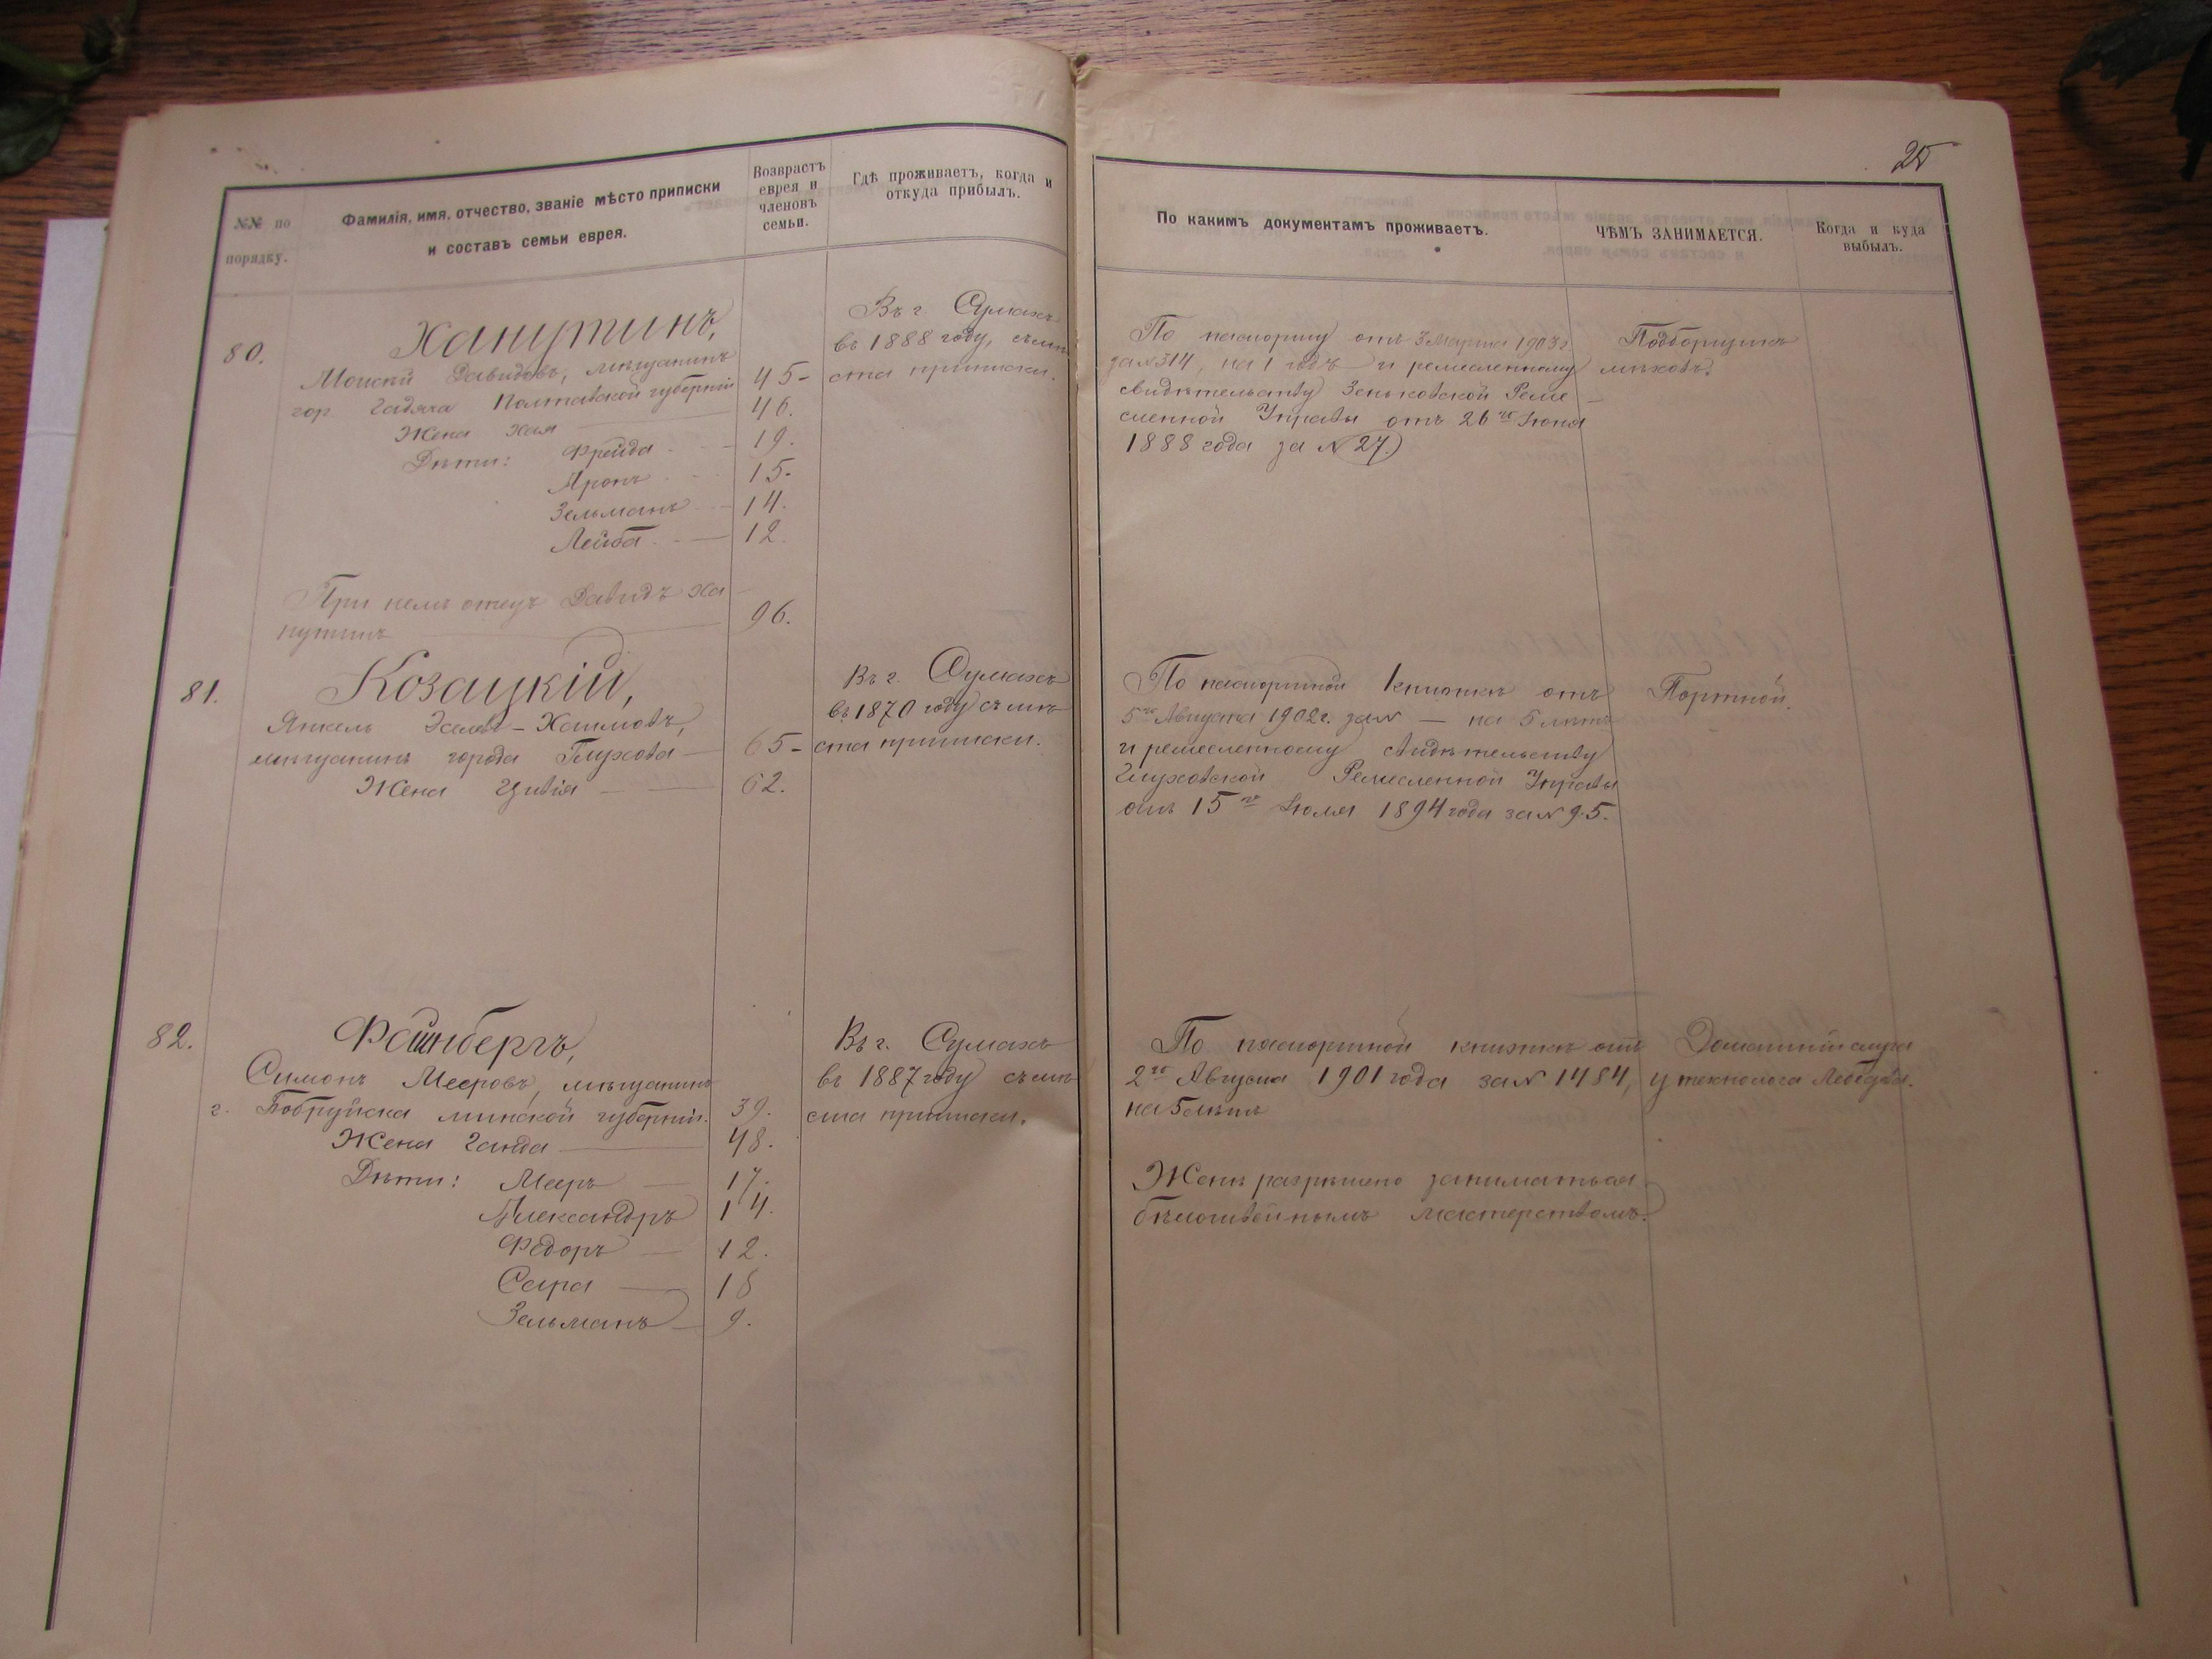 25
№№ по
порядку.
Фамилія, имя, отчество, званіе мѣсто приписки
и составъ семьи еврея.
Возврастъ
еврея и
членовъ
семьи.
Гдѣ проживаетъ, когда и
откуда прибылъ.
По какимъ документамъ проживаетъ.
ЧѢМЪ ЗАНИМАЕТСЯ.
Когда и куда
выбылъ.
80.
Ханутинъ,
Моисей Давидовъ, мѣщанинъ
гор. Гадяча Полтавской губерніи 45-
Жена Хая 46.
Дѣти: Фрейда 19.
Аронъ 15-
Зельманъ 14.
Лейба 12.
При немъ отецъ Давидъ Ха
нутинъ 96.
Въ г. Сумахъ
въ 1888 году, съ мѣ
ста приписки.
По паспорту отъ 3 Марта 1903 г.
за № 314, на 1 годъ и ремесленному
свидѣтельству Зеньковской Реме-
сленной Управы отъ 26го Іюня
1888 года за № 27.)
Подборщикъ
мѣховъ.
81.
Козацкій,
Янкель Хаимовъ,
мѣщанинъ города Глухова 65-
Жена Цивія 62.
Въ г. Сумахъ
въ 1870 году съ мѣ
ста приписки.
По паспортной книжкѣ отъ
5го Августа 1902 г. за № — на 5 лѣтъ
и ремесленному свидѣтельству
Глуховской Ремесленной Управы
отъ 15го Іюля 1894 года за № 95.
Портной.
82.
Файнбергъ,
Симонъ Мееровъ, мѣщанинъ
г. Бобруйска Минской губерніи. 39.
Жена Ганда 48.
Дѣти: Мееръ 17.
Александръ 14.
Федоръ 12.
Сара 18
Зельманъ 9.
Въ г. Сумахъ
въ 1887 году съ мѣ
ста приписки.
По паспортной книжкѣ отъ
2го Августа 1901 года за № 1484,
на 5 лѣтъ
Женѣ разрѣшено заниматься
бѣлошвейнымъ мастерствомъ.
Домашній слуга
у технолога Лебедева.